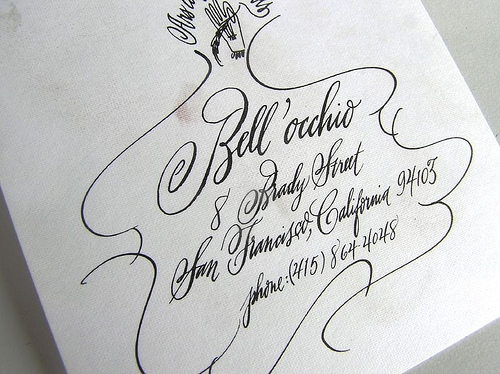 Bell'occhio
8 Brady Street
San Francisco, California 94103
phone: (415) 864-4048